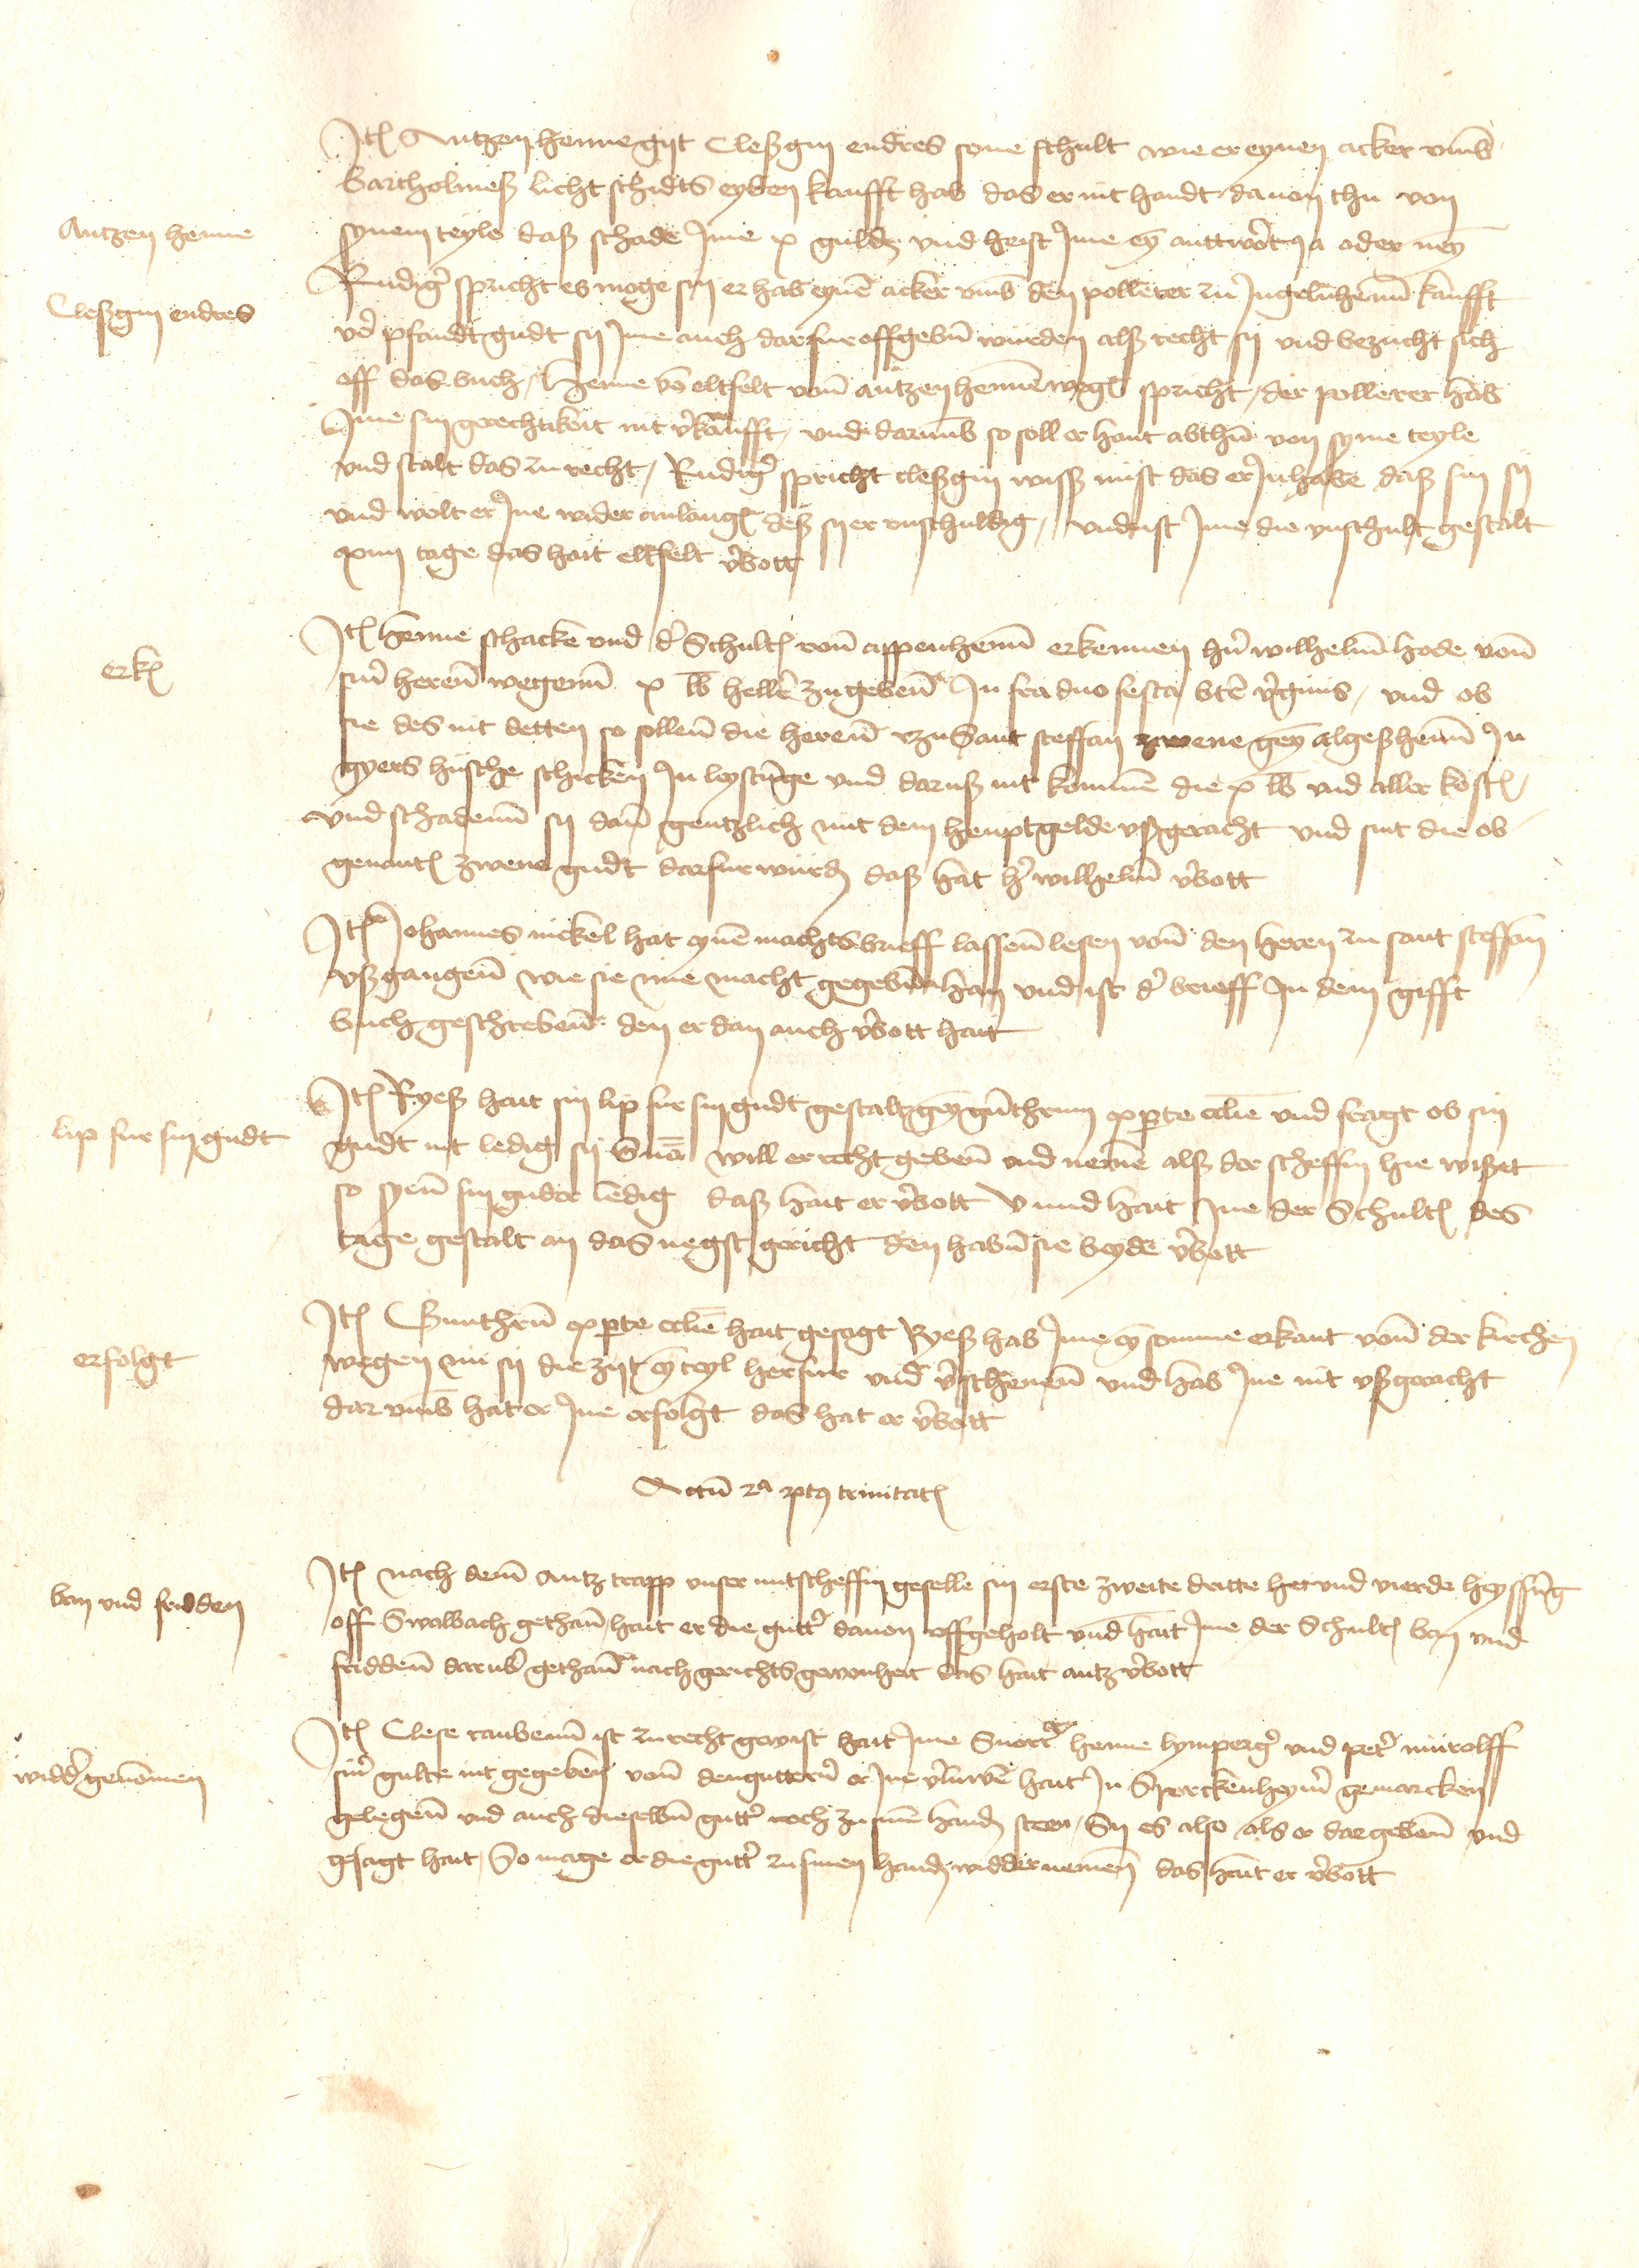 Jt(em) Antzen henne gijt Cleßgin endres sone schult wie er eynen acker vmb
Bartholmeß licht schidts eyden kaufft hab das er nit handt dauon thu von
Antzen henne
synem teyle daß schade Jme x guld(en) vnd heist Jme ey(n) anttw(or)t ja oder ney(n)
Cleßgin endres
Rudig(er) spricht es moge sin er hab eyne(n) acker vmb den polleter zu Jngelnhey(m) kaufft
v(er) pfandt gudt sij Jme auch darfur offgeb(e)n wurden alß recht sij vnd bezucht sich
off das buch / Henne vo(n) eltfelt von antzen henne(n) weg(en) spricht / der polleter hab
Jme sin gerechtikeit nit v(er)kaufft / vnd darumb so soll er hant abthu(n) von syme teyle
vnd stalt das zu recht / Rudig(er) spricht cleßgin wiß nust das er Jnhabe daß sin sij
vnd wolt er Jne wider anlang(en) deß sij er vnschuldig / vnd ist Jme die vnschult gestalt
xiiij tage das hait eltfelt v(er)bott
erk(ant)
Jt(em) henne schacke vnd d(er) Schult(eß) von appenhey(m) erkennen h(er)n wilhelm hode von
sin(er) heren wegen x lb heller zugeben Jn fra duo festa b(ea)te v(ir)ginis / vnd ob
sie des nit detten so sollen die heren zu Sant steffan zwene gey(n) algeßhey(m) Jn
gyers husche schicken Jn leystu(n)ge vnd daruß nit komme(n) die x lb vnd aller kost(en) /
vnd schaden sij dan gentzlich mit dem heuptgelde vßgeracht vnd sint die ob
genant(en) zwene gudt darfur wurd(en) daß hat h(er) wilhelm v(er)bott
Jt(em) Johannes nickel hat eyne(n) machtsbrieff lassen lesen von den heren zu sant steffan
vßgangen wie sie ime macht gegeb(e)n han vnd ist d(er) brieff Jn dem gifft
buch geschreben den er dan auch v(er)bott hait
lip fur sin gudt
Jt(em) Ryeß hait sin lip fur sin gudt gestalt gey(n) gu(n)thrum ex p(ar)te eccl(es)ie vnd fragt ob sin
gudt nit ledig sij S(e)n(tentia) will er recht geben vnd neme(n) alß der scheffin hie wiset
so syen sin guder ledig daß hait er v(er)bott v vnd hait Jne der Schult(eß) des
tage gestalt an das negst gericht den hab(e)n sie beyde v(er)bott
erfolgt
Jt(em) Gunthru(m) ex p(ar)te eccl(es)ie hait gesagt Ryeß hab Jme ey(n) somme erkant von der kirchen
wegen nu sij die zijt ey(n) teyl herfur vnd v(er)schenen vnd hab Jne nit vßgeracht
dar vmb hat er Jne erfolgt das hat er v(er)bott
Actu(m) 2a p(os)t trinitat(is)
ban vnd fridden
Jt(em) nach dem Antz trapp vnser mitscheffin geselle sin erste zweite dritte her vnd vierde heyssu(n)g
off Swalbach gethan hait er die gutt(er) dauon offgeholt vnd hait Jme der Schult(eß) ban vnd
fridden darub(er) gethan nach gerichts gewonheit das hait antz v(er)bott
widd(er) genommen
Jt(em) Clese raubenn ist zu recht gewist hait Jme Snorr henne hymperg(er) vnd pet(er) murolff
sin(er) gulte nit gegeben von den guttern er Jne v(er)luwe(n) hait Jn Spreckenheym(er) gemarcken
gelegen vnd auch dieselb(e)n gutt(er) noch zu sine(n) hand(en) steen / Sij es also als er dargeben vnd
gesagt hait / So mage er die gutt(er) zu sinen hand(en) widder nemen das hait er v(er)bott